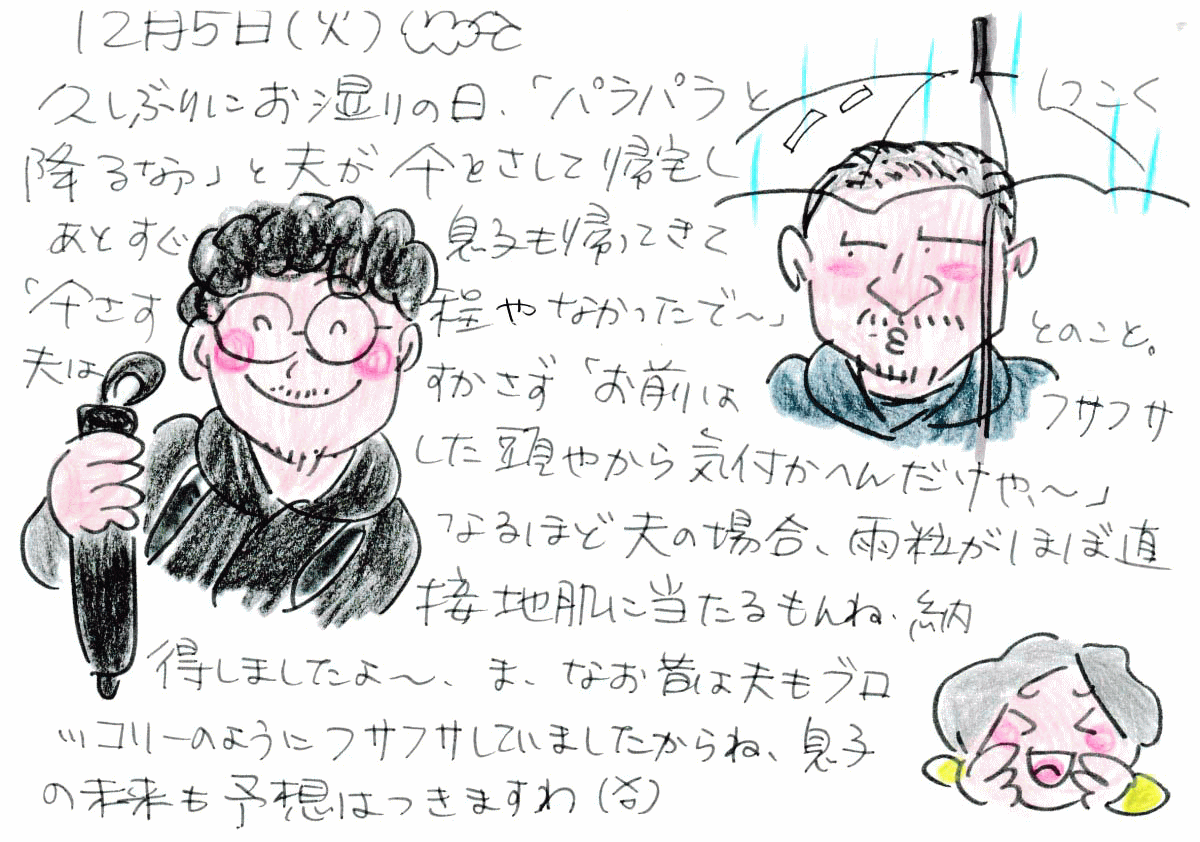 12月5日(火)
久しぶりにお湿りの日、「パラパラと しつこく
降るなぁ」と夫が傘をさして帰宅し
あとすぐ 息子も帰ってきて
「傘さす 程やなかったで〜」 とのこと。
夫は すかさず「お前は フサフサ
した頭やから気付かへんだけや〜」
なるほど夫の場合、雨粒がほぼ直
接地肌に当たるもんね。納
得しましたよ〜、ま、なお昔は夫もブロ
ッコリーのようにフサフサしていましたからね、息子
の未来も予想はつきますわ